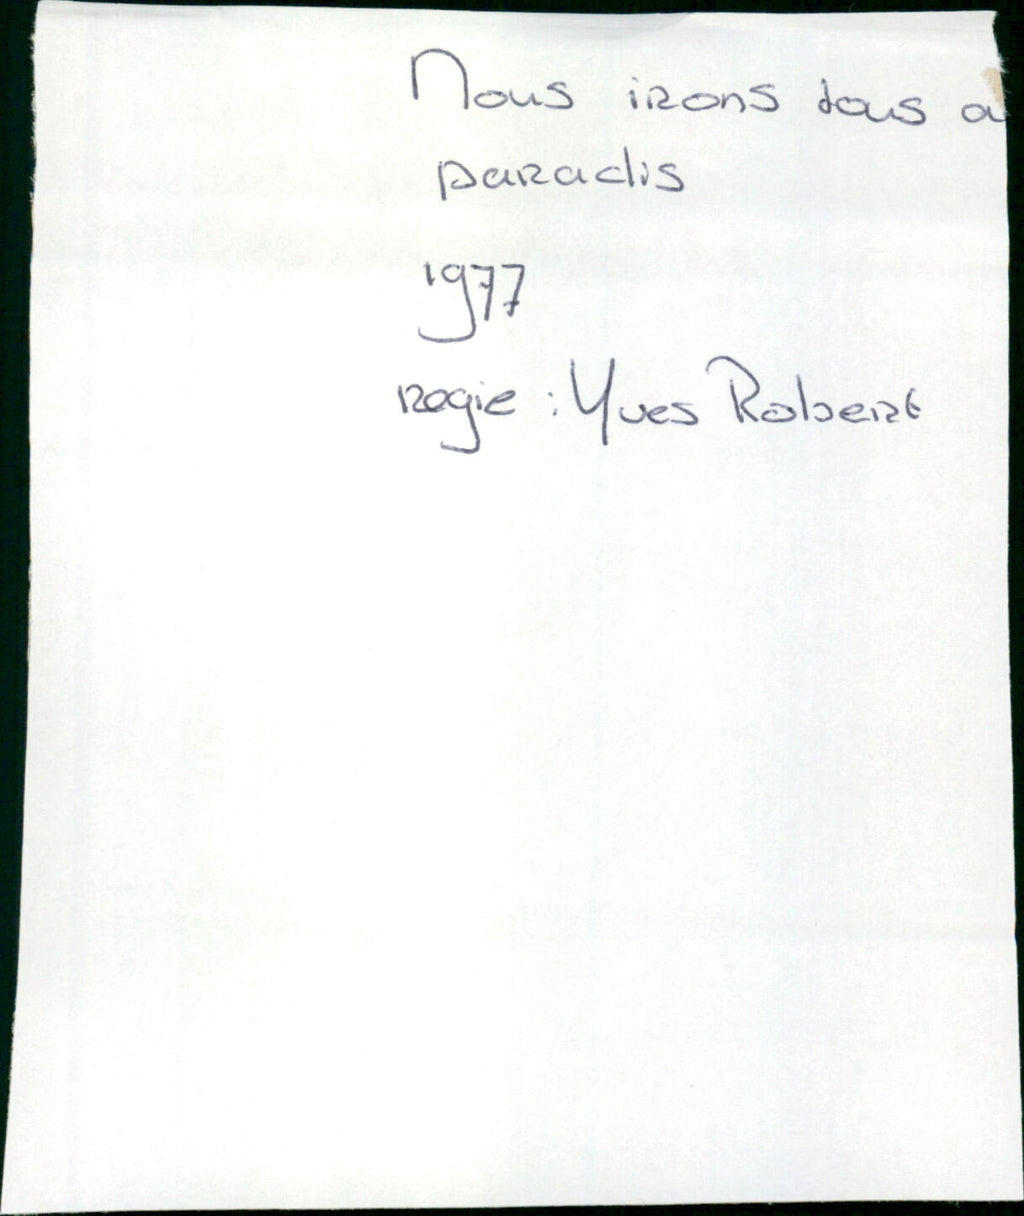 Nous irons tous a
paradis
1977
regie : Yves Robert